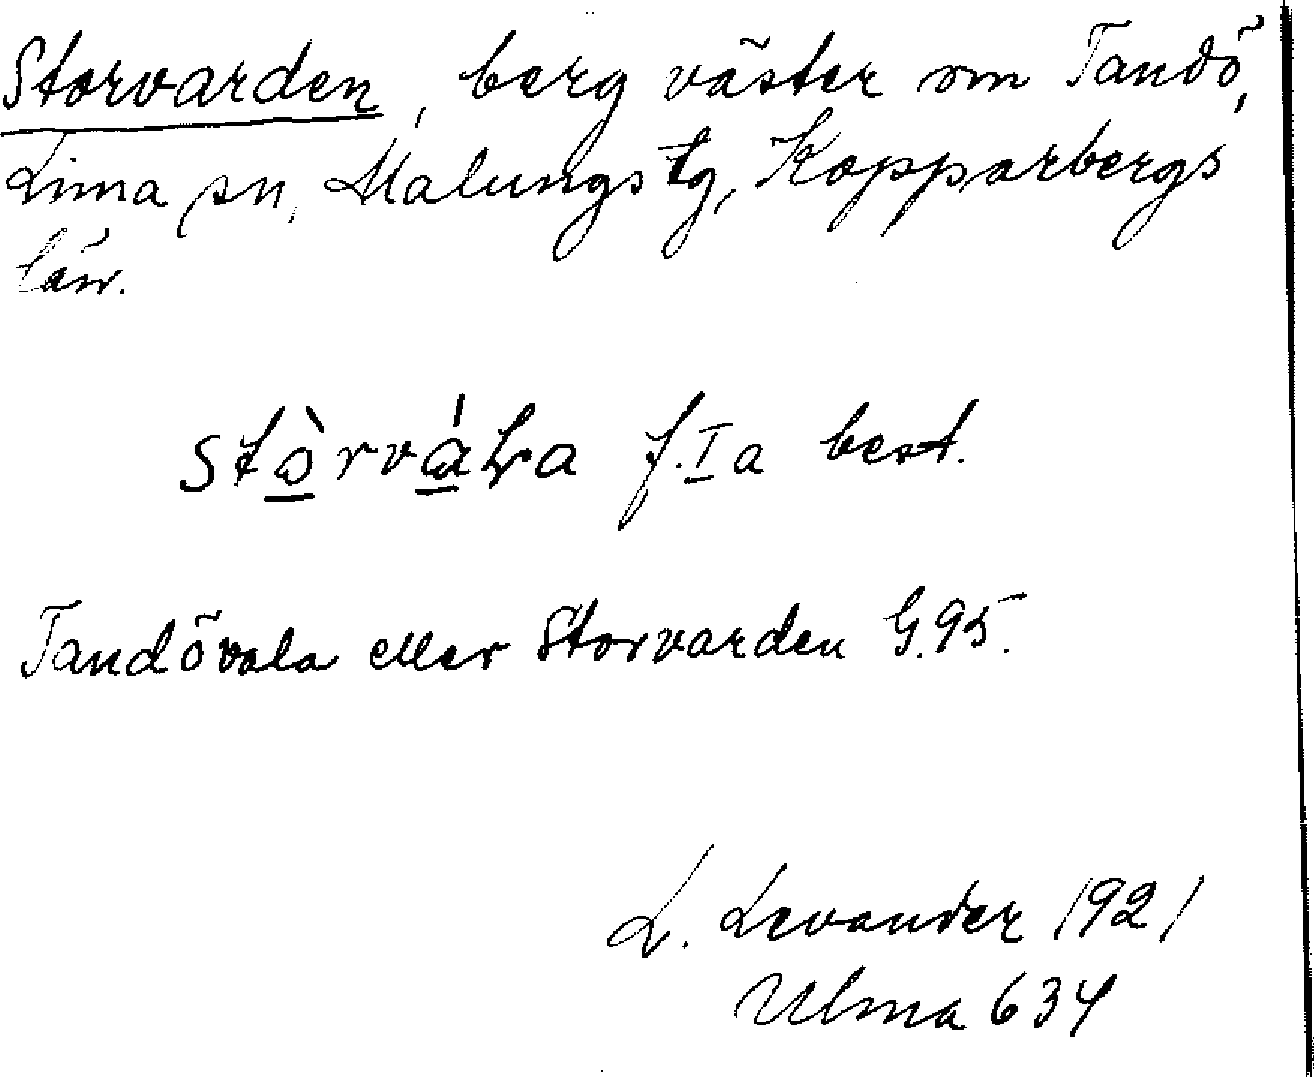 Storvarden, berg väster om Tandö,
Lima sn, Malungs tg, Kopparbergs
län.
f. I a best.
Tandövala eller Storvarden G. 95.
L. Levander 1921
Ulma 634